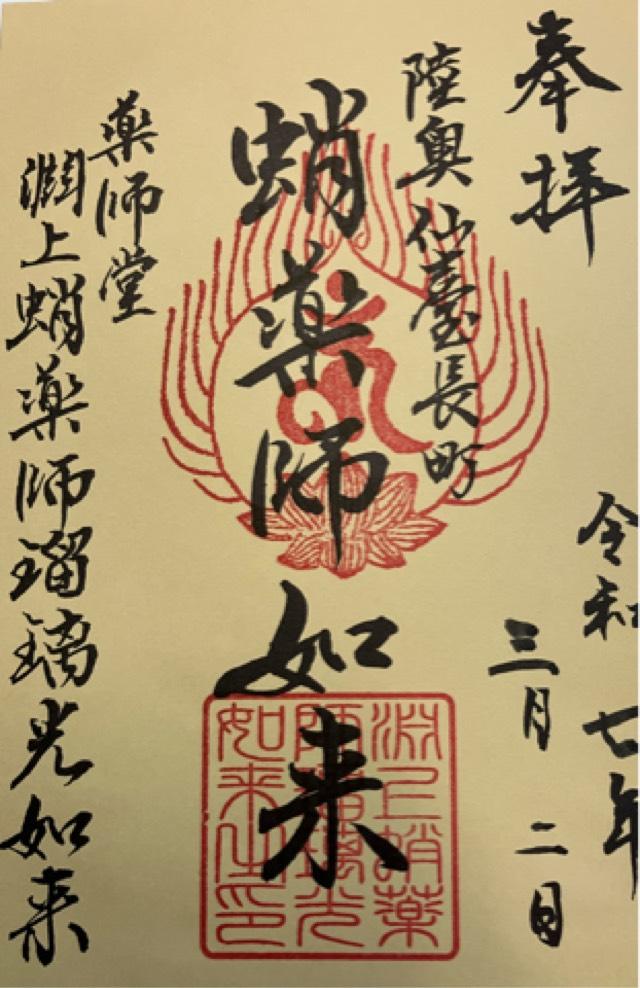 奉拝
令和七年
三月二日
陸奥仙臺長町
蛸薬師如来
薬師堂
渕上蛸薬師瑠璃光如来
淵上蛸薬
師瑠璃光
如来之印